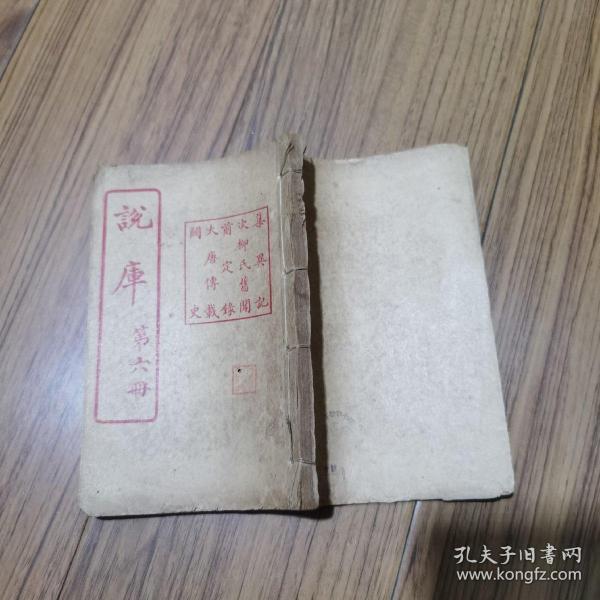 說庫
第六冊
集異記
次柳氏舊聞
前定錄
大唐傳載
闕史
孔夫子旧書网
www.kongfz.com